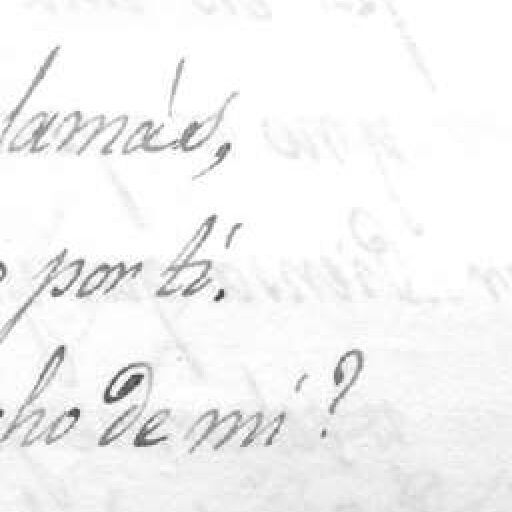 lamás,
por tí.
cho de mí?